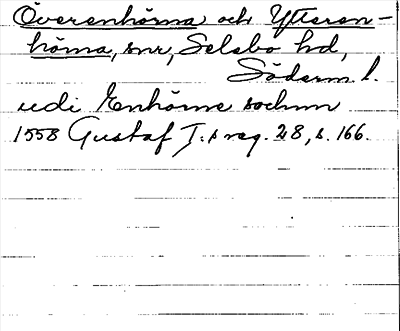 Överenhörna och Ytteren-
hörna, snr, Selebo hd,
Söderm. l.
udi Enhörne sochnn
1558 Gustaf I:s reg. 28, s. 166.